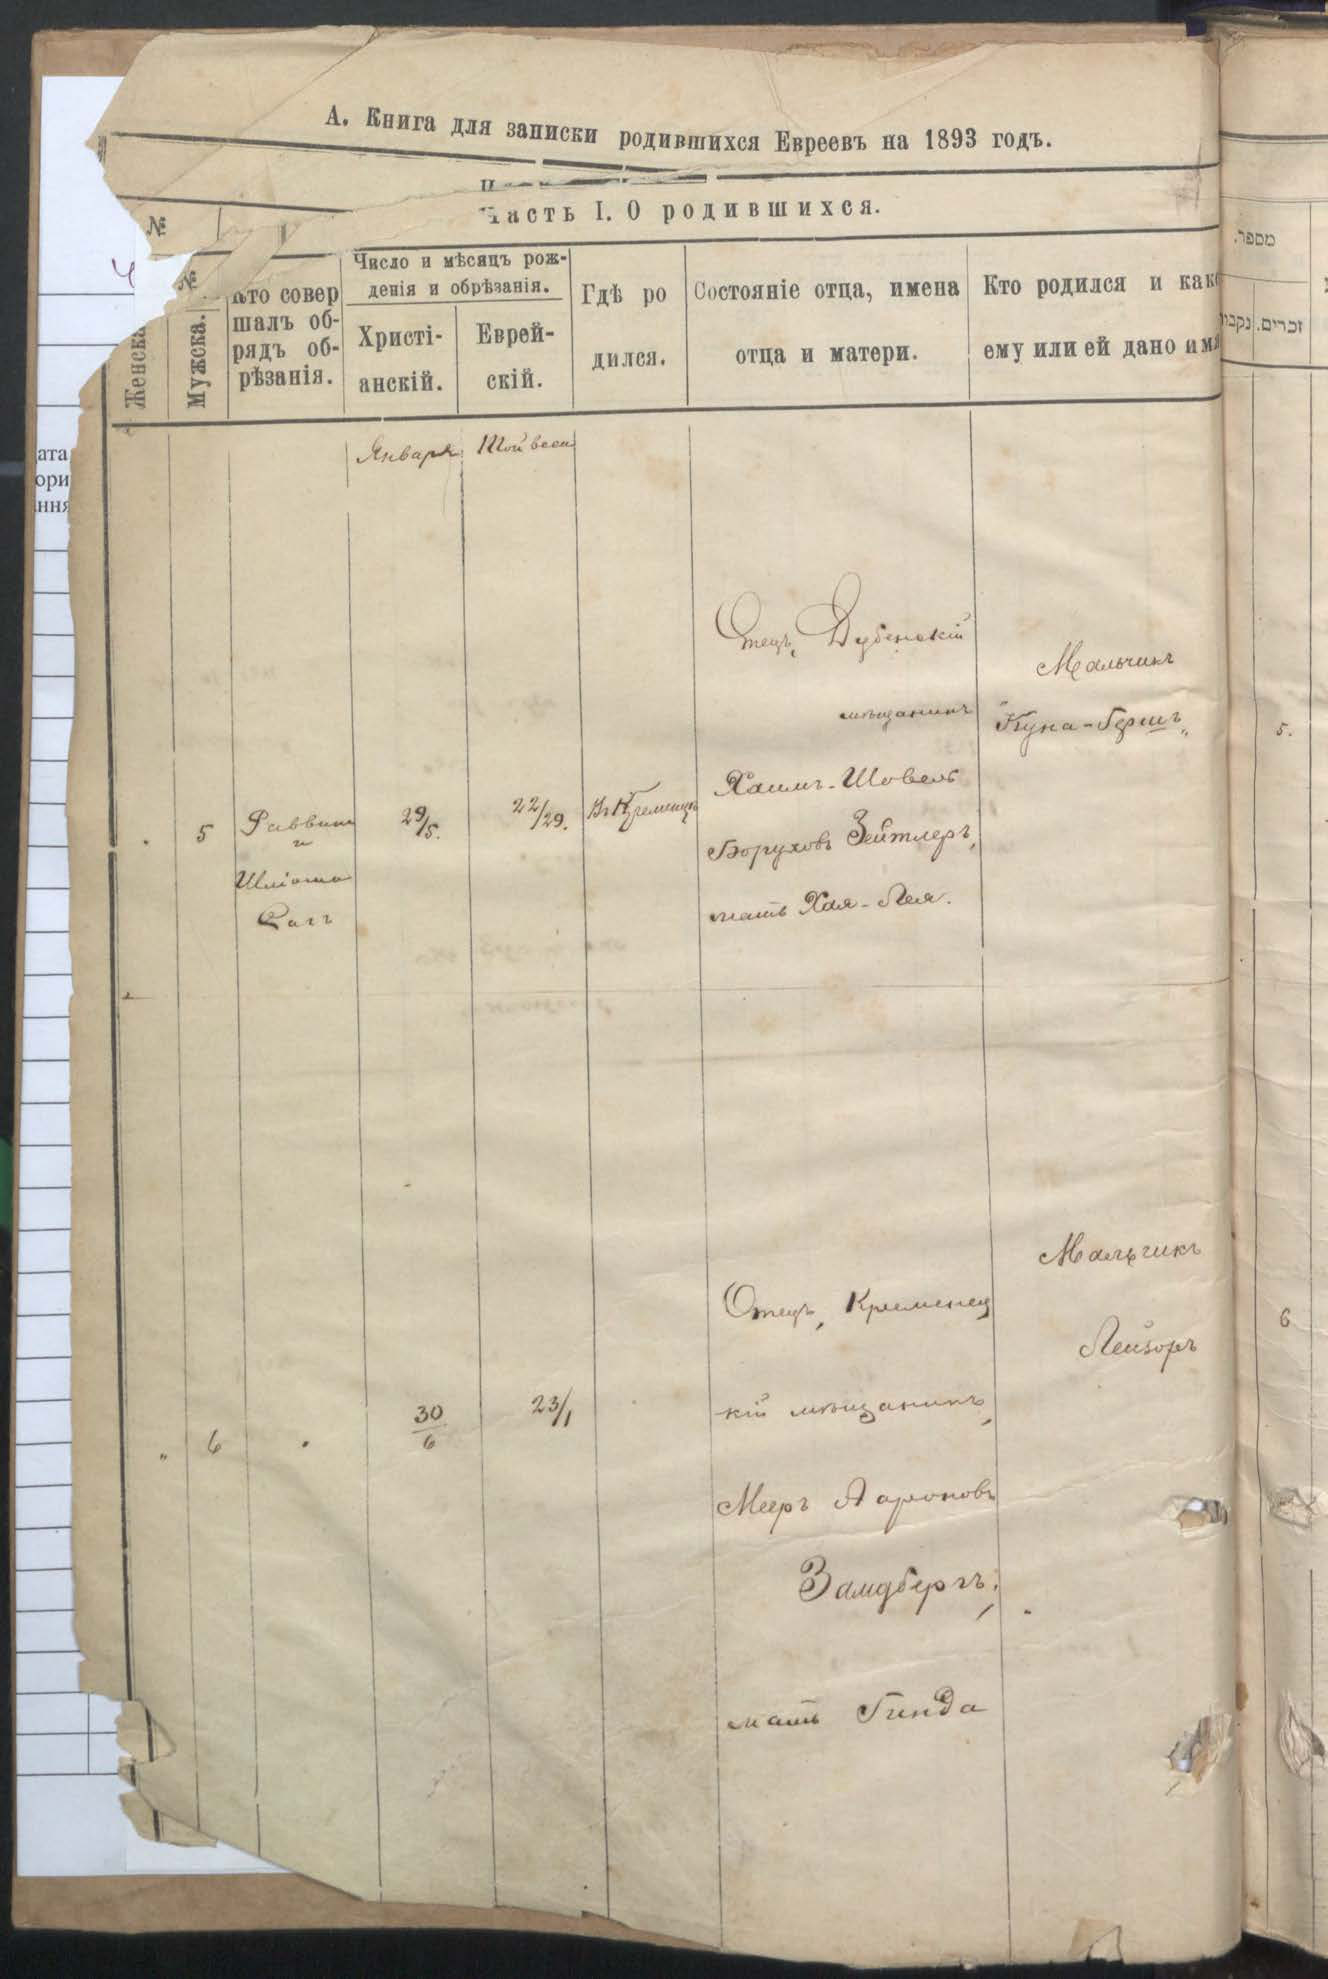 А. Книга для записки родившихся Евреевъ на 1893 годъ.
Часть I. О родившихся.
№
№
Женска
Мужска.
Кто совер
шалъ об-
рядъ об-
рѣзанія.
Число и мѣсяцъ рож-
денія и обрѣзанія.
Христі-
анскій.
Еврей-
скій.
Гдѣ ро
дился.
Состояніе отца, имена
отца и матери.
Кто родился и како
ему или ей дано имя
מספר.
זכרים.
ата
ори
ння
Января
5
Раввинъ
и
29/5.
22/29.
Въ Кременцѣ
Отецъ, Дубенскій
мѣщанинъ
Хаимъ-Шовель
Боруховъ Зейтлеръ,
мать Хая-Лея.
Мальчикъ
"Куна-Гершъ"
5.
" 6
30/6
23/1
Отецъ, Кременец
кій мѣщанинъ,
Мееръ Аароновъ
Замдбергъ,
мать Гинда
Мальчикъ
Лейзоръ
6